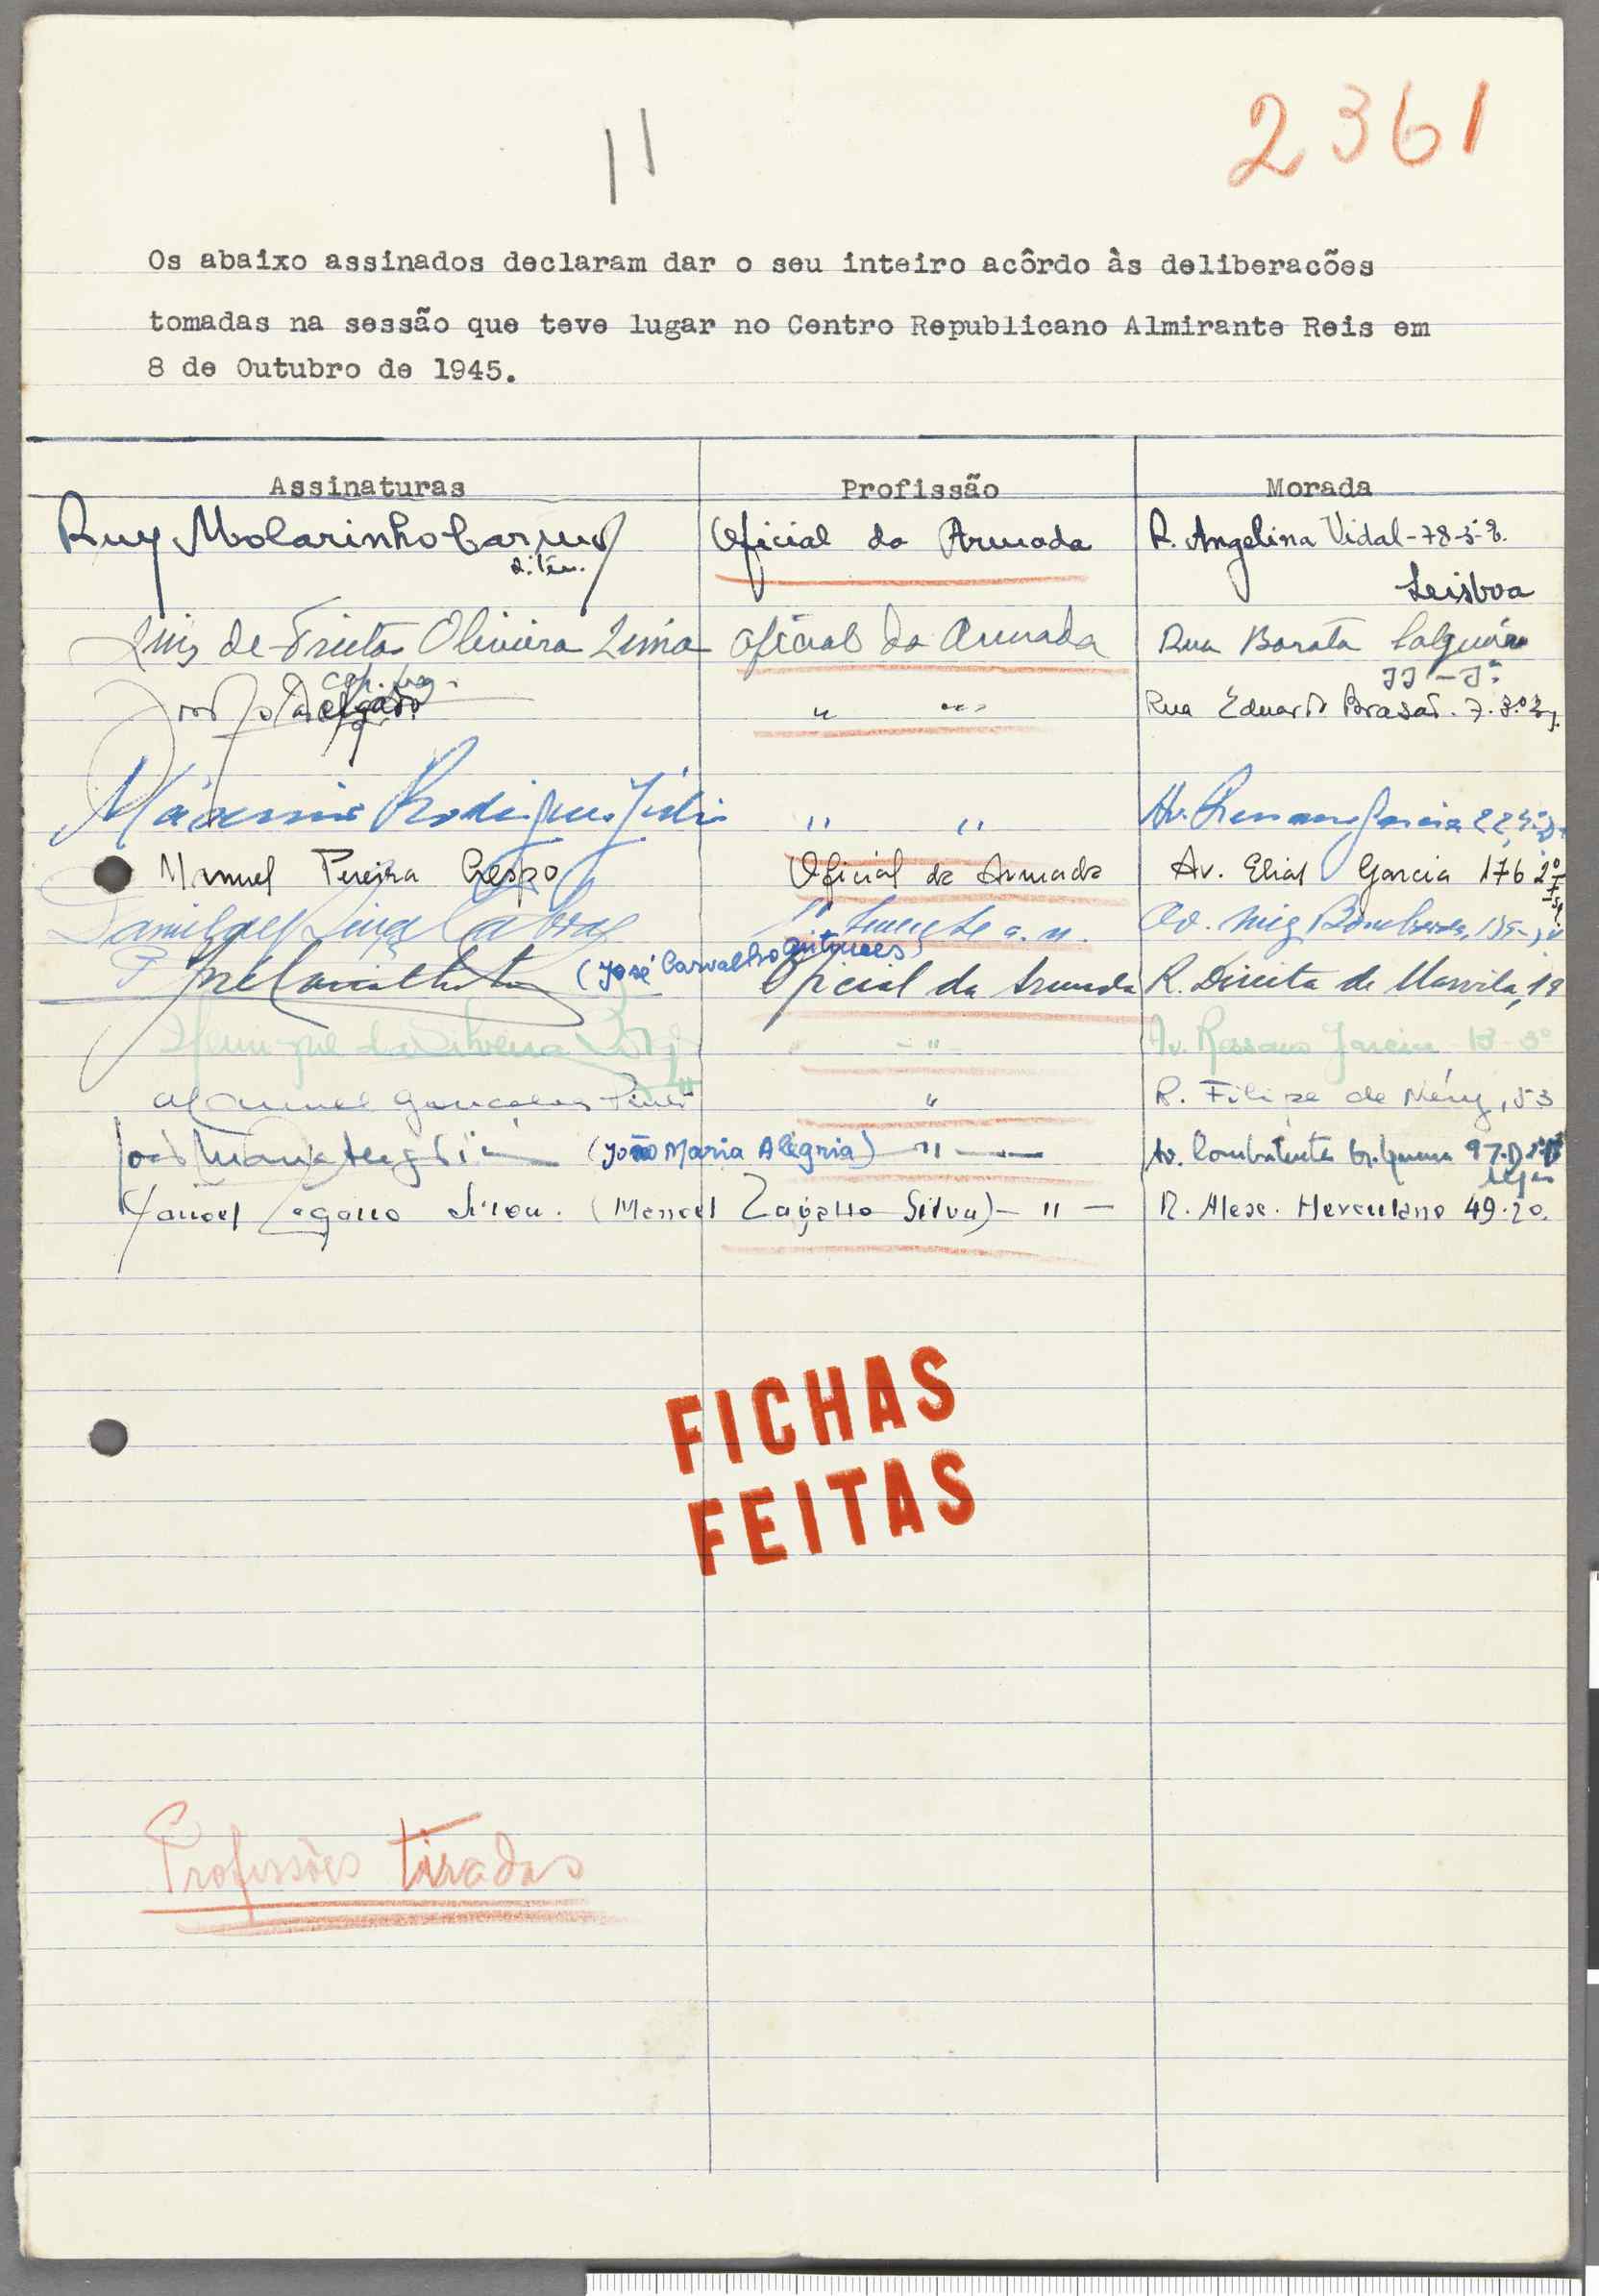 11
2361
Os abaixo assinados declaram dar o seu inteiro acôrdo às deliberacões
tomadas na sessão que teve lugar no Centro Republicano Almirante Reis em
8 de Outubro de 1945.
Assinaturas Profissão Morada
Ruy Molarinho Carmo Oficial da Armada R. Angelina Vidal-78-3-
2.º ten. Lisboa
Luis de Freitas Oliveira Lima Oficial da Armada Rua Barata Salgueiro
Delgado " " Rua Eduardo Brasão. 7. 3.º
Rodrigues " " Av. Garcia
Manuel Pereira Crespo Oficial da Armada Av. Elias Garcia 176 2º
Cabral tenente a. n. Av. Bombarda
(José Carvalho Antunes) Oficial da Armada R. Direita de Marvila, 19
Henrique da Silveira " Av. Ressano Garcia 13-3º
Manuel Gonçalves " R. Filipe de Néry, 53
(João Maria Alegria) " Av. Combatentes Gr. Guerra 97
(Manoel Zagallo Silva) " R. Alex. Herculano 49-2º.
FICHAS
FEITAS
Profissões tiradas